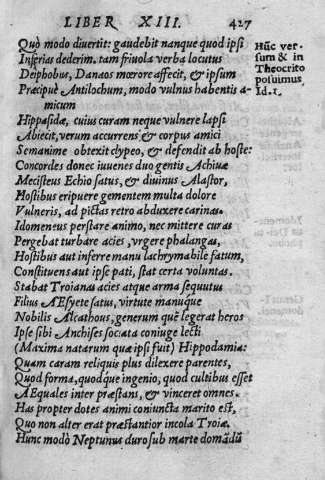 LIBER XIII. 427
Quò modo divertit: gaudebit nanque quod ipsi
Inferias dederim. tam friuola verba locutus
Deiphobus, Danaos mœrore affecit, & ipsum
Præcipuè Antilochum, modo vulnus habentis a-
micum
Hippasidæ, cuius curam neque vulnere lapsi
Abiecit, verum accurrens & corpus amici
Semanime obtexit clypeo, & defendit ab hoste:
Concordes donec iuuenes duo gentis Achiuæ
Mecisteus Echio satus, & diuinus Alastor,
Hostibus eripuere gementem multa dolore
Vulneris, ad pictas retro abduxere carinas.
Idomeneus perstare animo, nec mittere curas
Pergebat turbare acies, vrgere phalangas,
Hostibus aut inferre manu lachrymabile fatum,
Constituens aut ipse pati, stat certa voluntas.
Stabat Troianas acies atque arma sequutus
Filius AEsyete satus, virtute manuque
Nobilis Alcathous, generum quē legerat heros
Ipse sibi Anchises sociata coniuge lecti
(Maxima natarum quæ ipsi fuit) Hippodamia:
Quam caram reliquis plus dilexere parentes,
Quod forma, quodque ingenio, quod cultibus esset
AEquales inter præstans, & vinceret omnes.
Has propter dotes animi coniuncta marito est,
Quo non alter erat præstantior incola Troiæ.
Hunc modò Neptunus duro sub marte domādū
Hūc ver-
sum & in
Theocrito
posuimus
Id. 1.